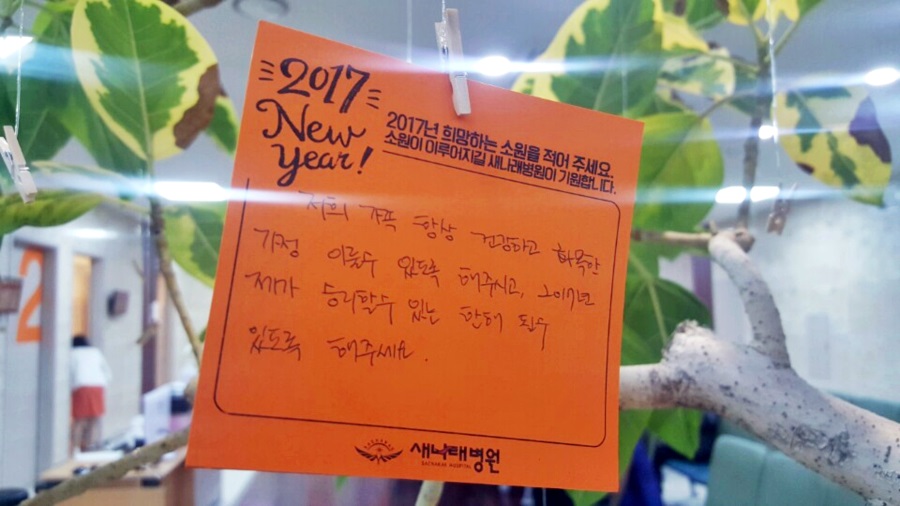 2017
New
Year!
2017년 희망하는 소원을 적어 주세요.
소원이 이루어지길 새나래병원이 기원합니다.
저희 가족 항상 건강하고 화목한
가정 이룰수 있도록 해주시고, 2017년
제가 승리할수 있는 한해 될수
있도록 해주세요.
새나래병원
SAENARAE HOSPITAL
2